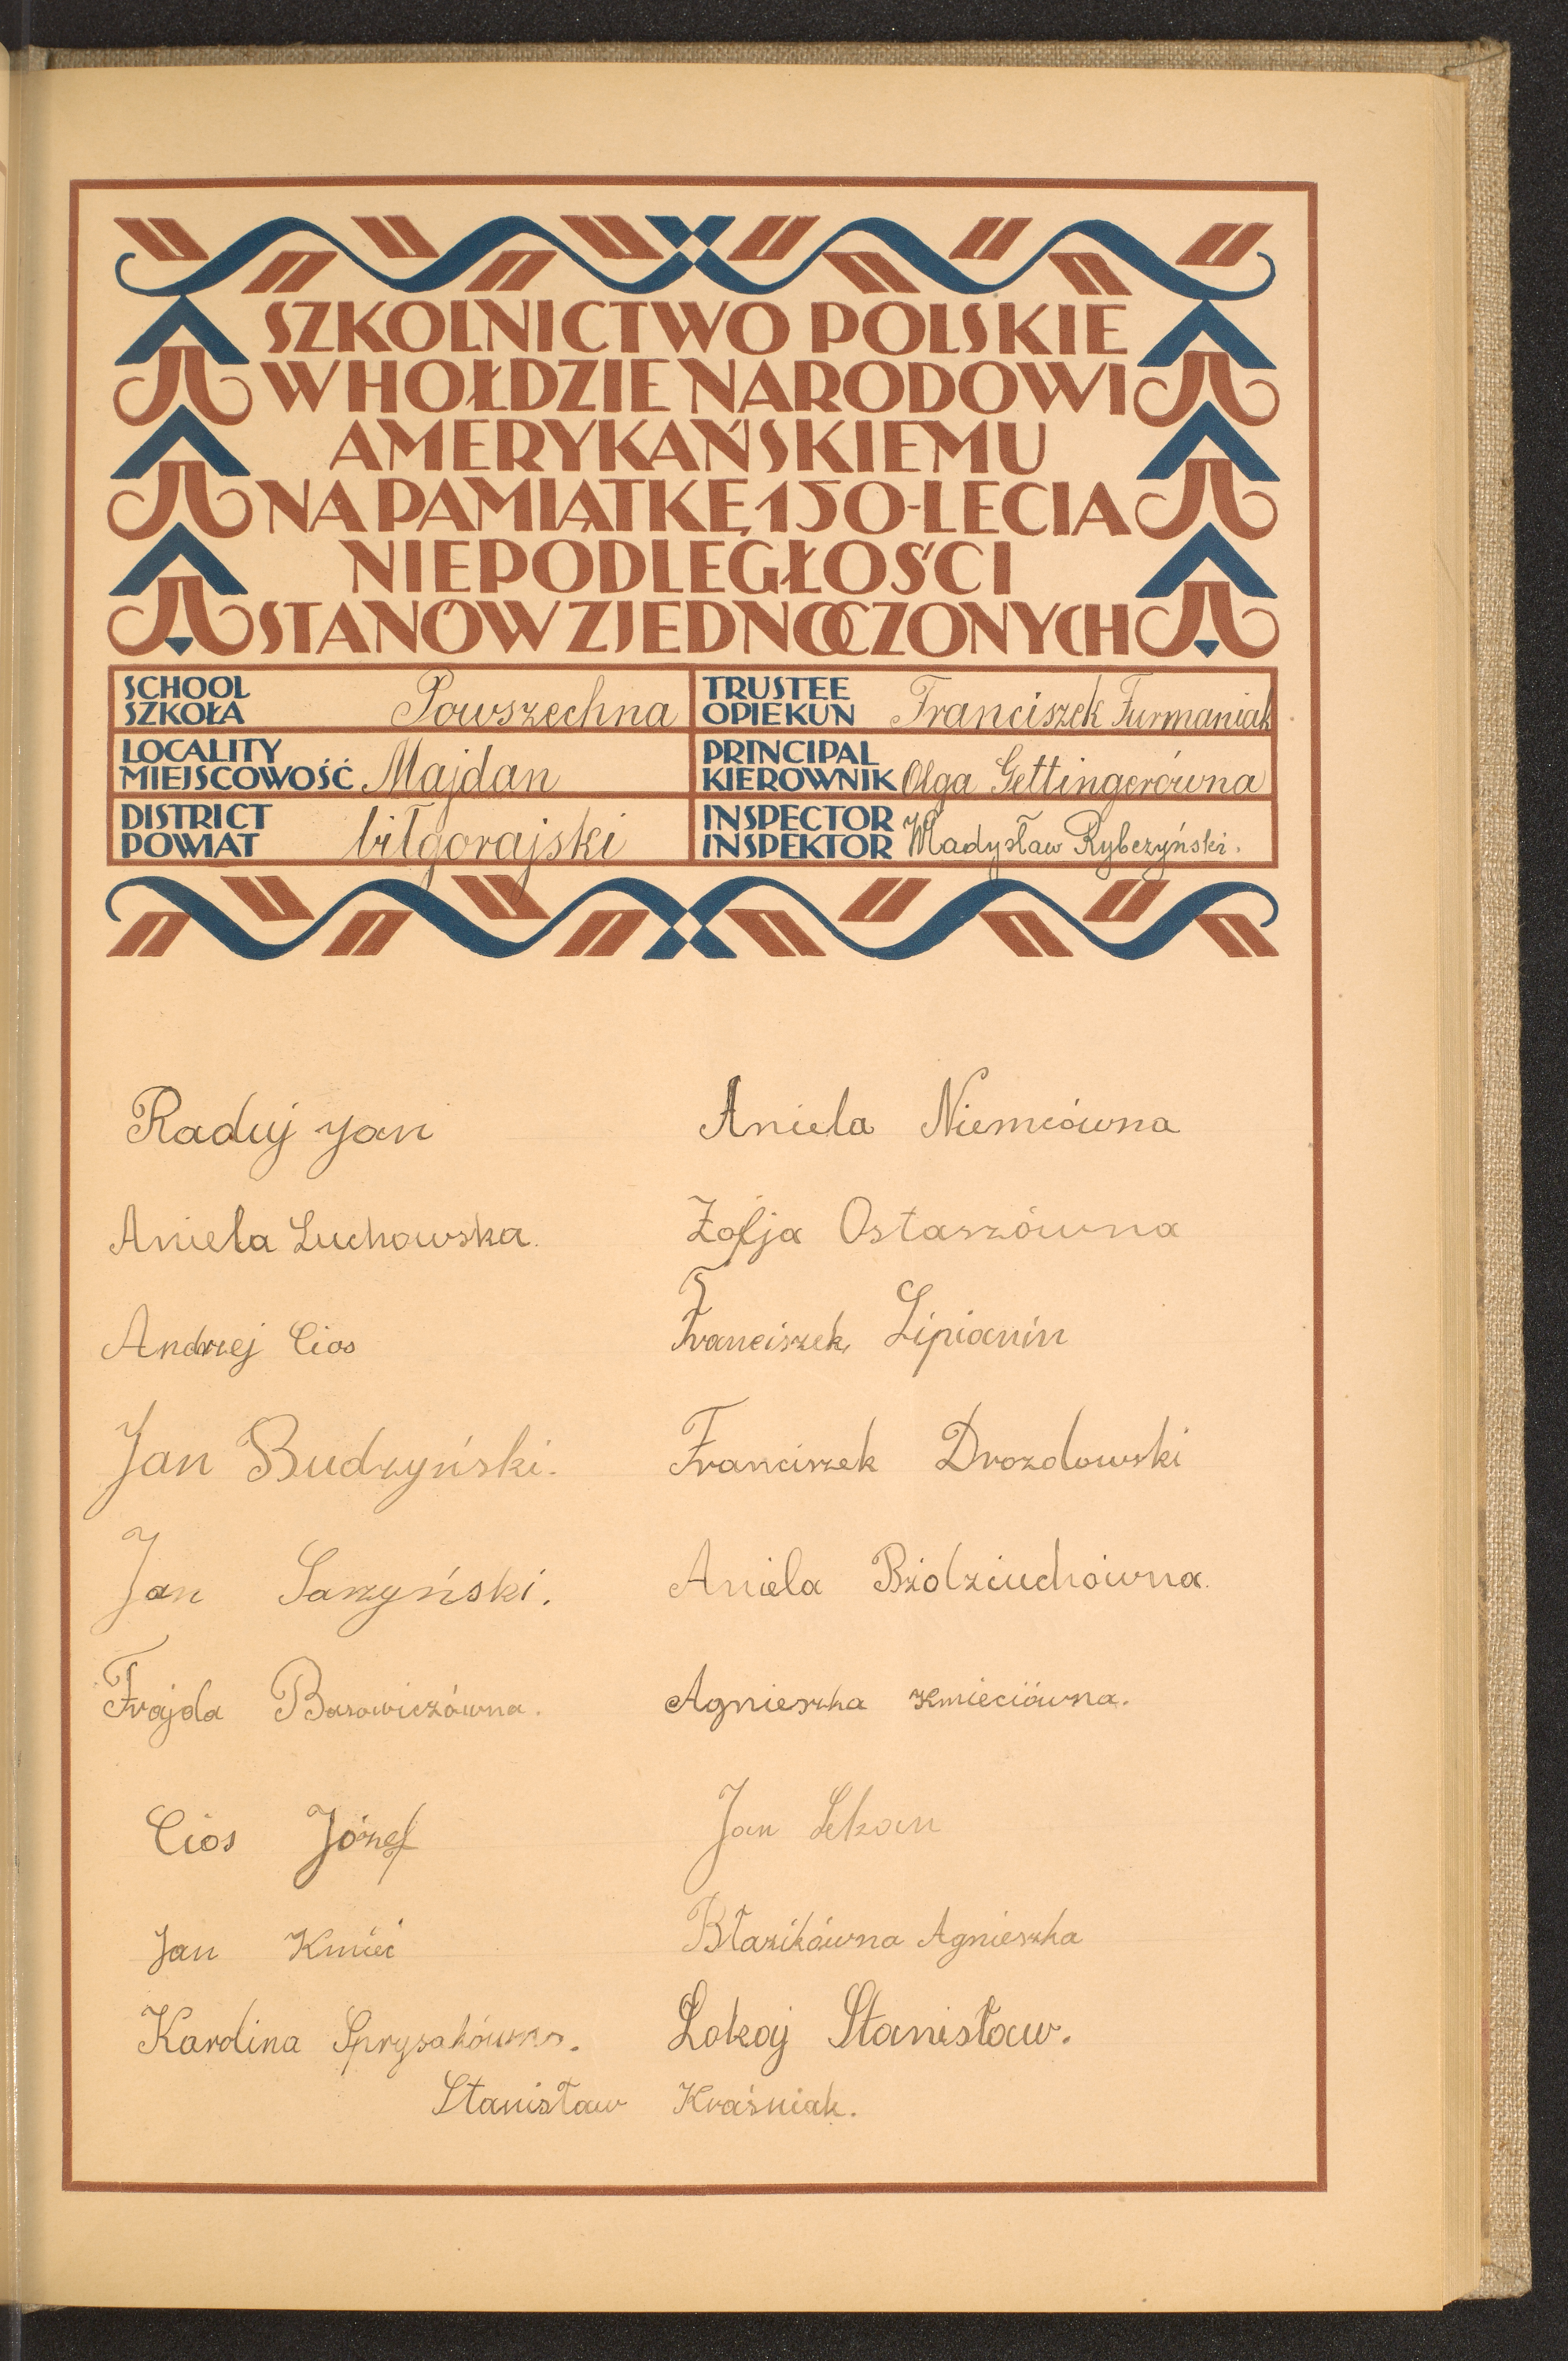 SZKOLNICTWO POLSKIE
W HOŁDZIE NARODOWI
AMERYKAŃSKIEMU
NA PAMIĄTKĘ 150-LECIA
NIEPODLEGŁOŚCI
STANÓW ZJEDNOCZONYCH
SCHOOL
SZKOŁA Powszechna
TRUSTEE
OPIEKUN Franciszek Furmaniak
LOCALITY
MIEJSCOWOŚĆ Majdan
PRINCIPAL
KIEROWNIK Olga Gettingerówna
DISTRICT
POWIAT biłgorajski
INSPECTOR
INSPEKTOR Władysław Rybczyński.
Raduj Jan
Aniela Niemcówna
Aniela Luchowska.
Zofja Ostaszówna
Andrzej Cios
Franciszek Lipianin
Jan Budzyński.
Franciszek Drozdowski
Jan Sarzyński.
Aniela Bździuchówna.
Frajda Borowiczówna.
Agnieszka Kmieciówna.
Cios Józef
Jan Lekan
Jan Kmieć
Błazikówna Agnieszka
Karolina Sprysakówna.
Łokaj Stanisław.
Stanisław Kraśniak.